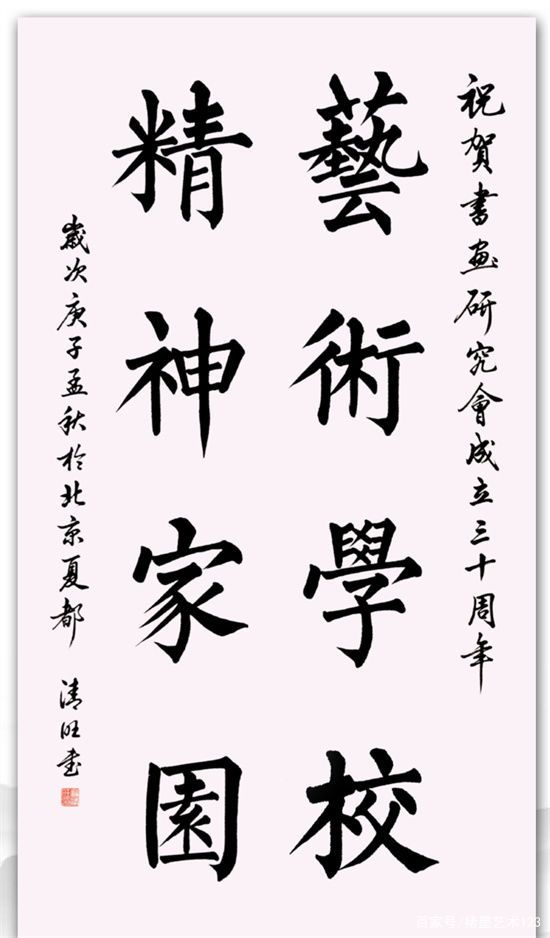 祝賀書画研究會成立三十周年
藝術學校
精神家園
歲次庚子孟秋於北京夏都 清旺书
百家号/楮墨艺术123